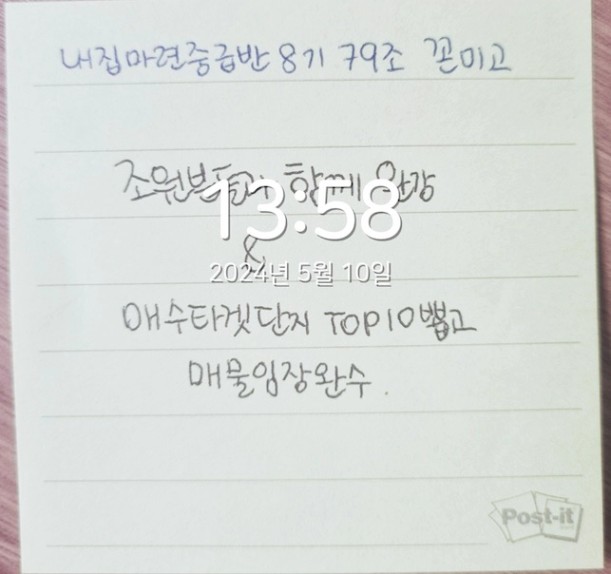 내집마련중급반 8기 79조 꼰미고
조원분들과 함께 완강
13:58
&
2024년 5월 10일
매수타겟단지 TOP10뽑고
매물임장완수.
Post-it